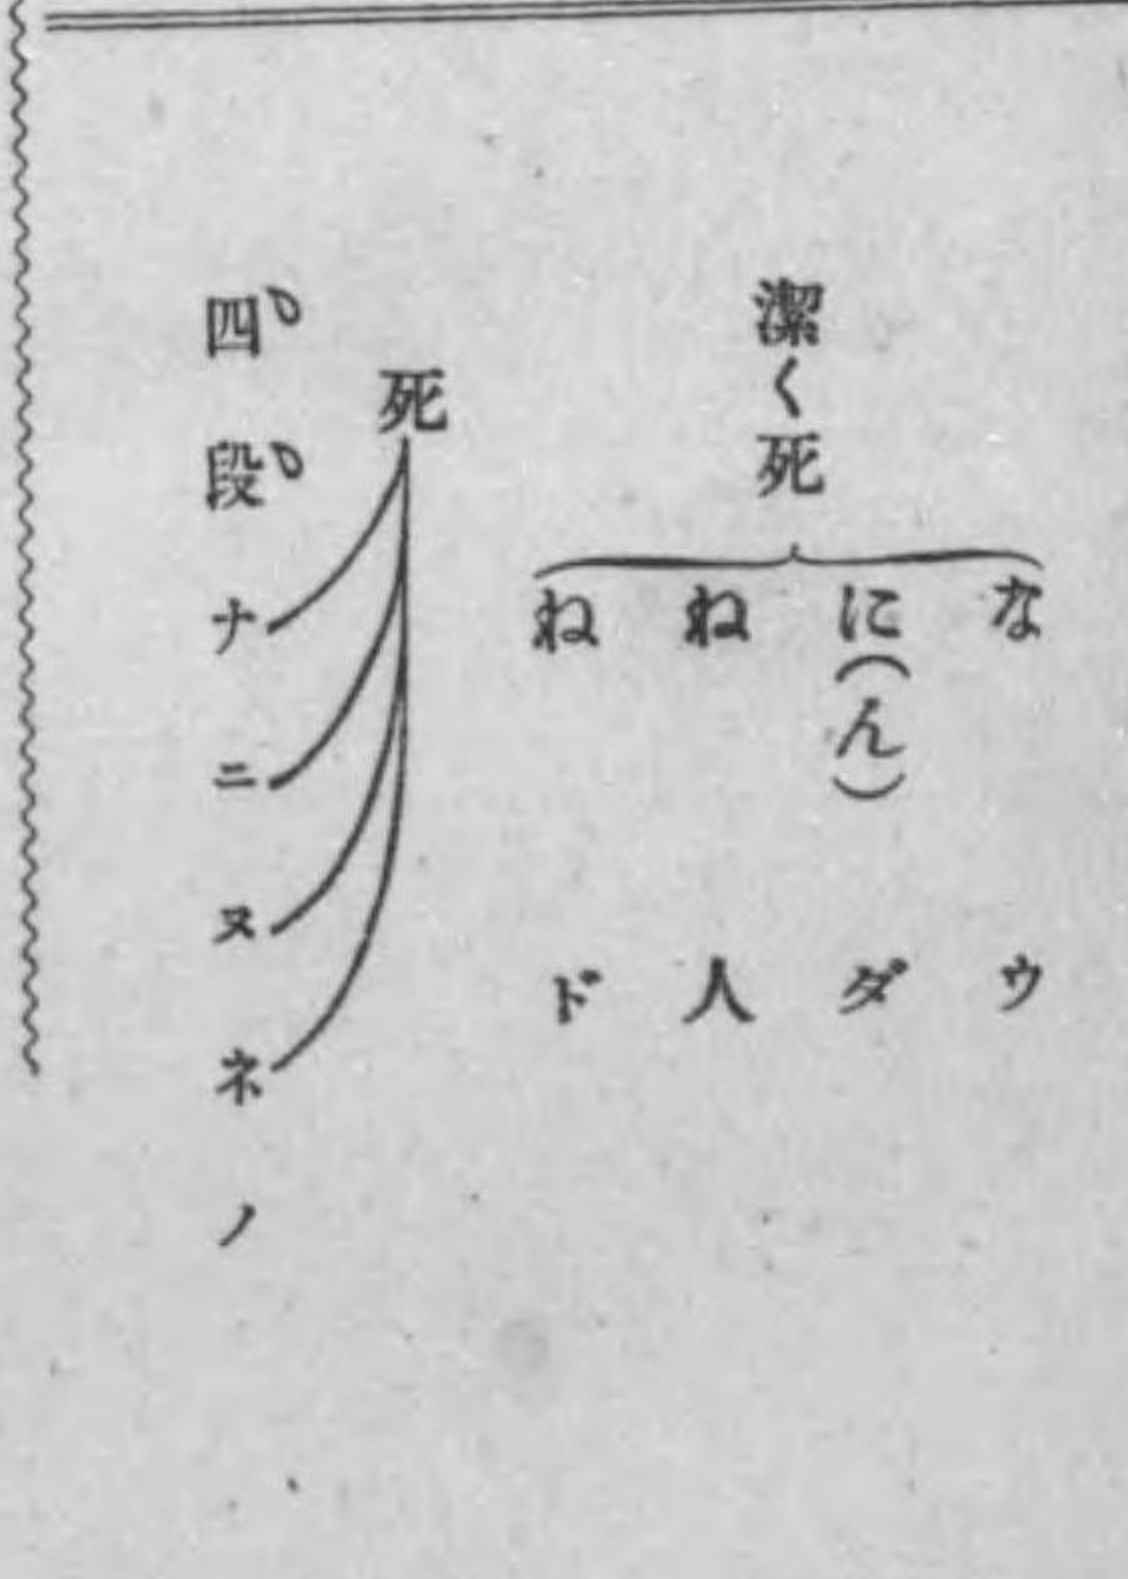 潔く死
な ウ
に(ん) ダ
ね 人
ね ド
死
四段 ナ ニ ヌ ネ ノ